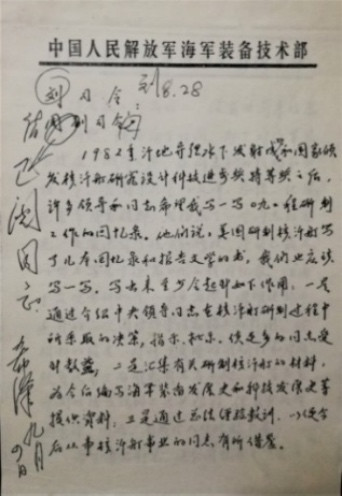 中国人民解放军海军装备技术部
刘司令:
刘 8.28
1982年潜地导弹水下发射成和国家颁
发核潜艇研究设计科技进步奖特等奖之后,
许多领导和同志希望我写一写〇九工程研制
工作的回忆录。他们说:美国研制核潜艇写
了几本回忆录和报告文学的书,我们也应该
写一写,写出来至少会起如下作用。一是
通过介绍中央领导同志在核潜艇研制过程中
所采取的决策、指示、批示,使更多的同志受
到教益,二是汇集有关研制核潜艇的材料,
为今后编写海军装备发展史和科技发展史等
提供资料;三是通过总结经验教训,以使今
后从事核潜艇事业的同志有所借鉴。
已阅同意
九月